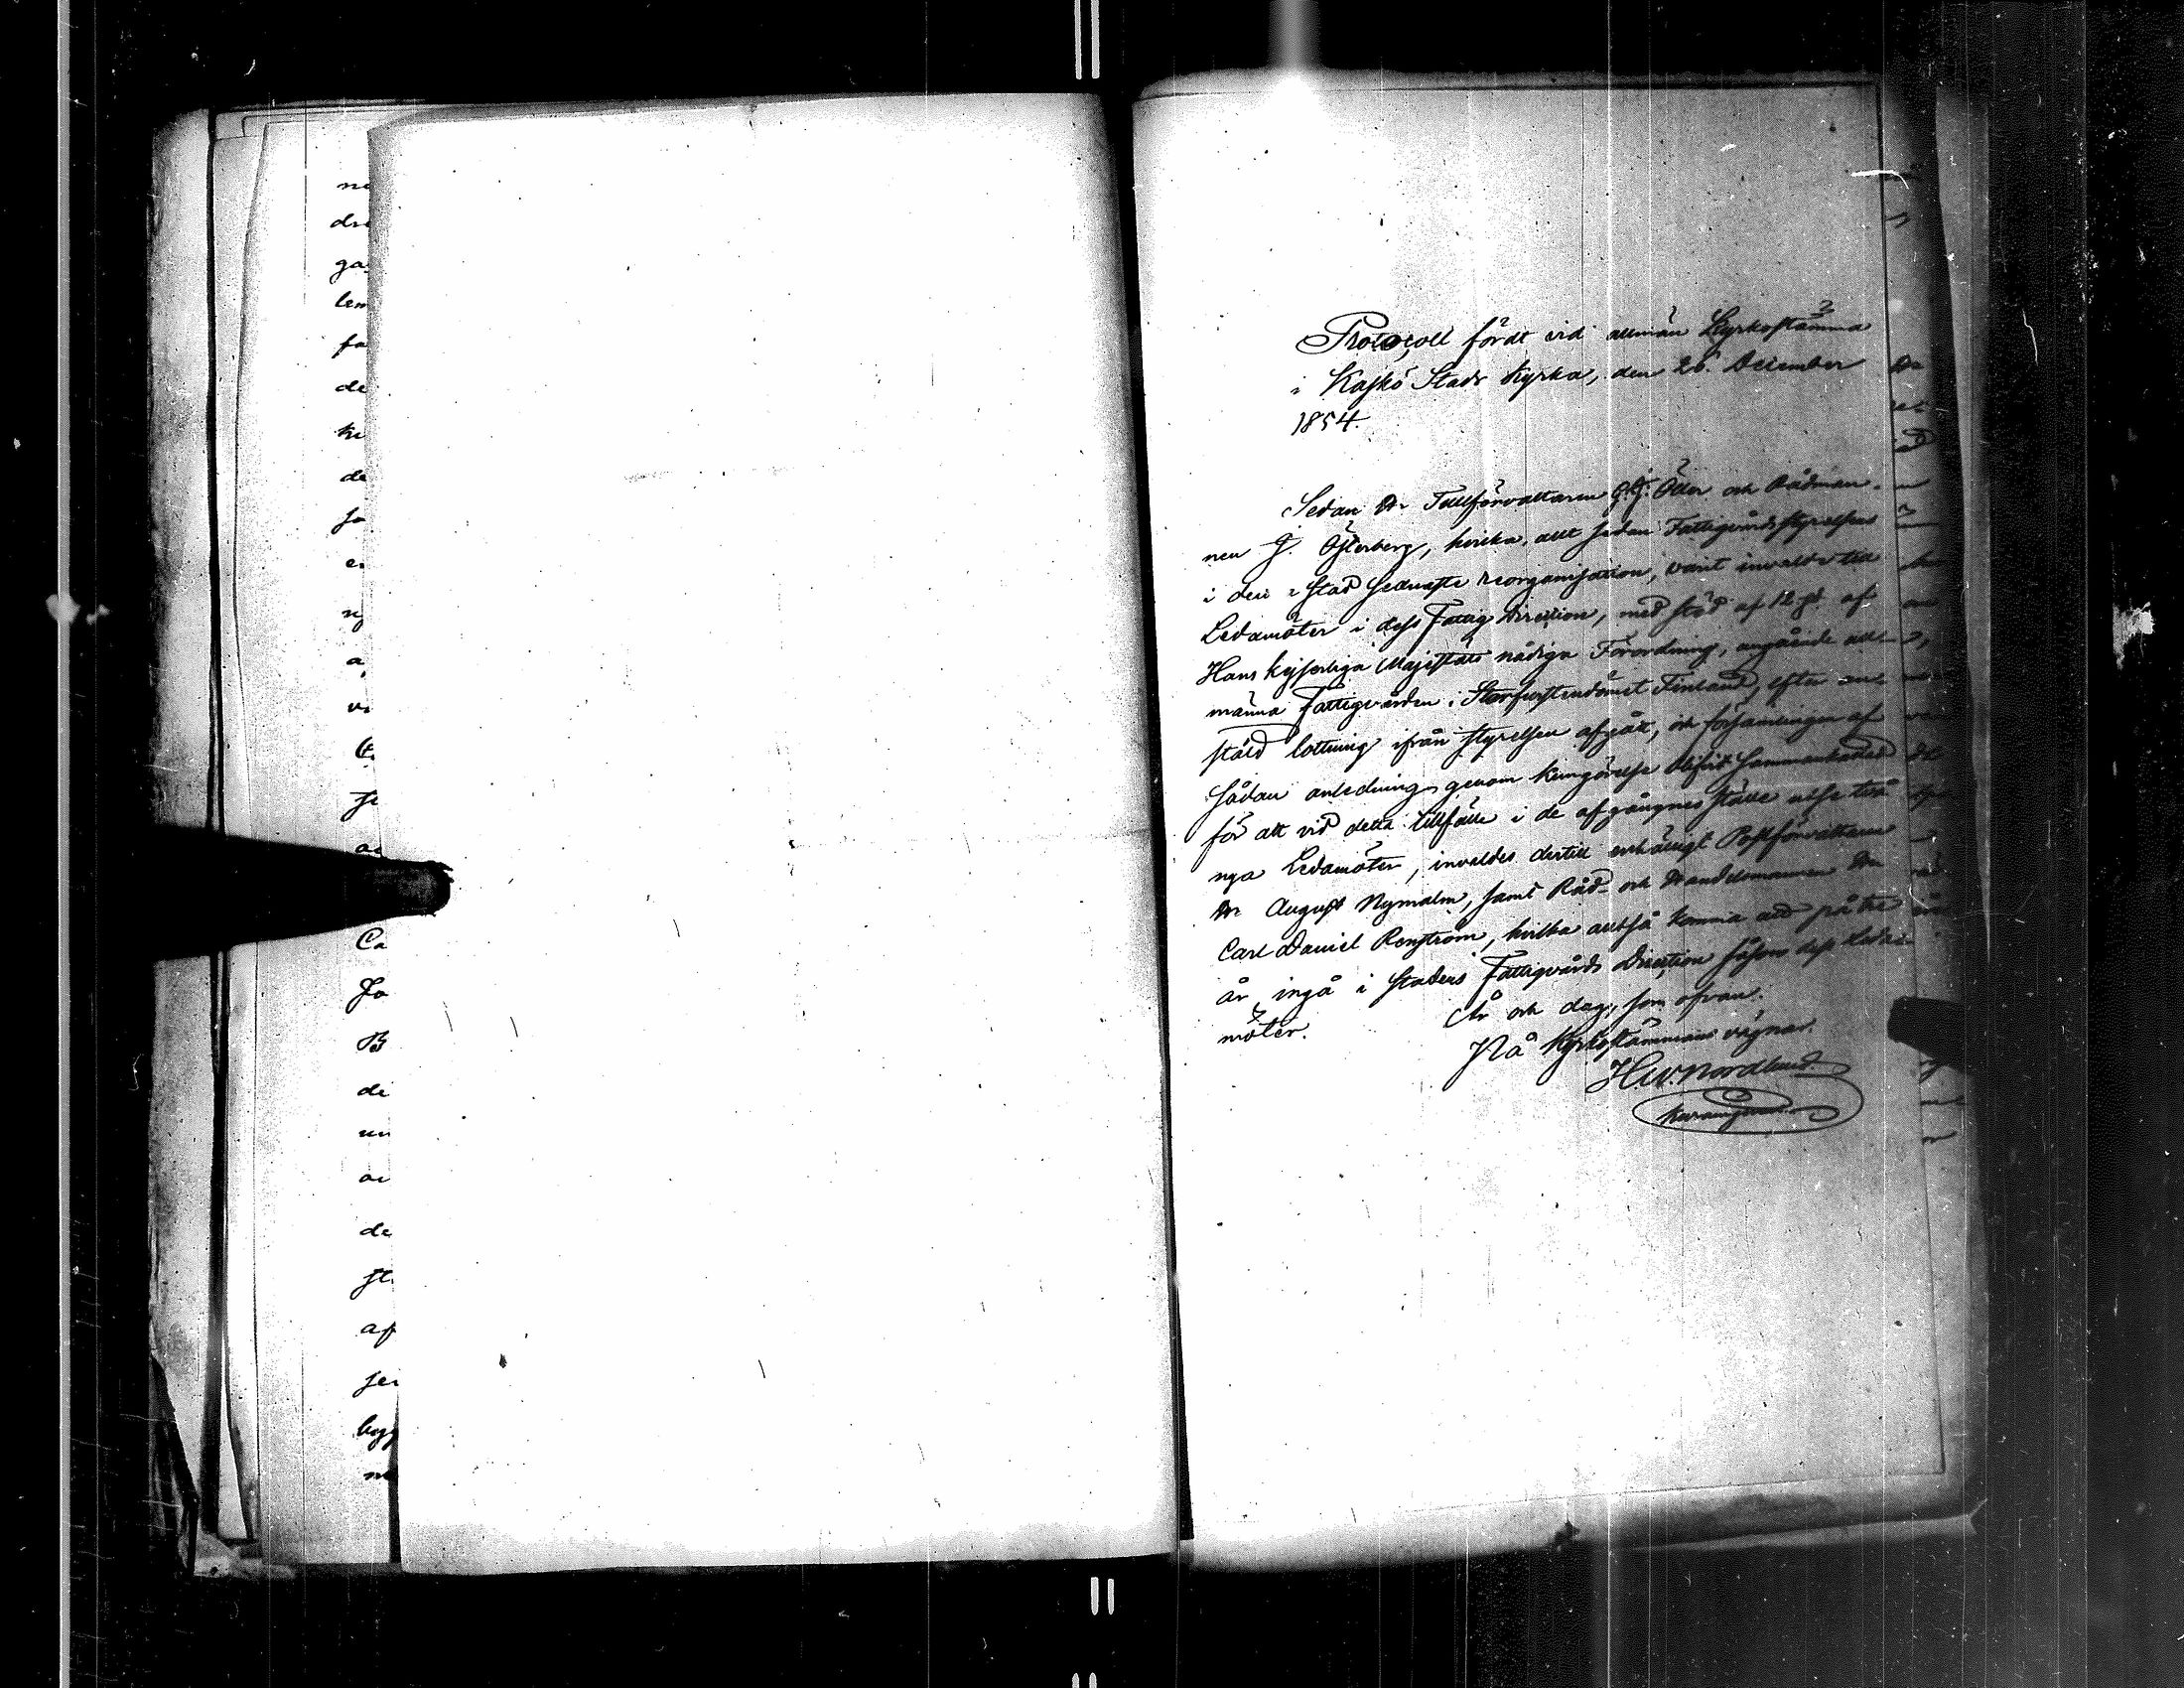 Protocoll fördt vid allmän Kyrkostämma
i Kaskö Stads Kyrka, den 26. December
1854.
Sedan Hr Tullförvaltaren G.J. Öller och Rådman-
nen J. Österberg, hvilka, allt sedan Fattigvårdsstyrelsens
i den Stad senaste reorganisation, varit invalde till
Ledamöter i dess Fattig Direction, med stöd af 12 pt. af
Hans Kejserliga Majestäts nådiga Förordning, angående all-
männa Fattigvården i Storfurstendömet Finland, efter an-
stäld lottning ifrån styrelsen afgått, och församlingen af
sådan anledning genom kungörelse blifvit sammankallad
för att vid detta tillfälle i de afgångnes ställe utse tvä
nya Ledamöter, invaldes dertill enhälligt Postförvaltaren
Hr August Nymalm, samt Råd- och Handelsmannen Hr
Carl Daniel Renström, hvilka alltså komma att på tre
år ingå i stadens Fattigvårds Direction såsom dess Leda-
möter.
År och dag, som ofvan.
På Kyrkostämmans vägnar.
H.W. Nordlund
ne
dra
ga
lem
fa
de
de
a
Ca
Jo
B
di
de
af
ser
byg